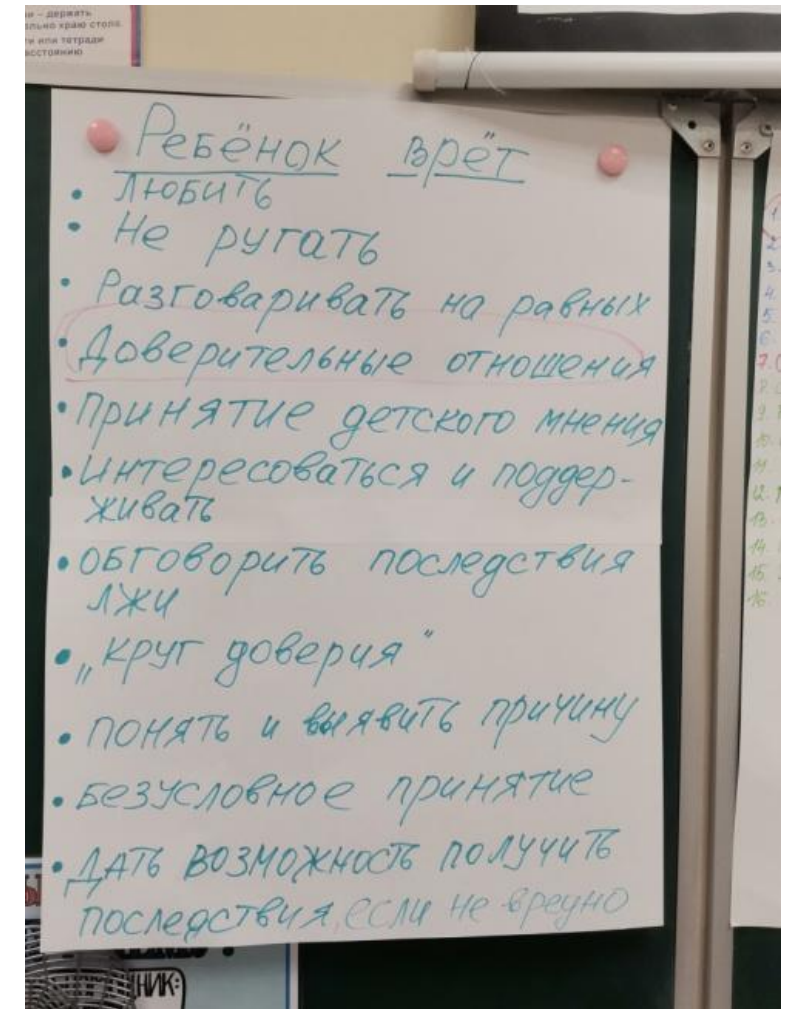 – держать
краю стола.
или тетради
Ребёнок врёт
• Любить
• Не ругать
• Разговаривать на равных
• Доверительные отношения
• Принятие детского мнения
• Интересоваться и поддер-
живать
• Обговорить последствия
лжи
• „Круг доверия“
• понять и выявить причину
• Безусловное принятие
• Дать возможность получить
последствия, если не вредно
1
2
3.
4.
5.
6.
7.
9.
10.
11
12.
13.
14.
15.
16.
НИК: